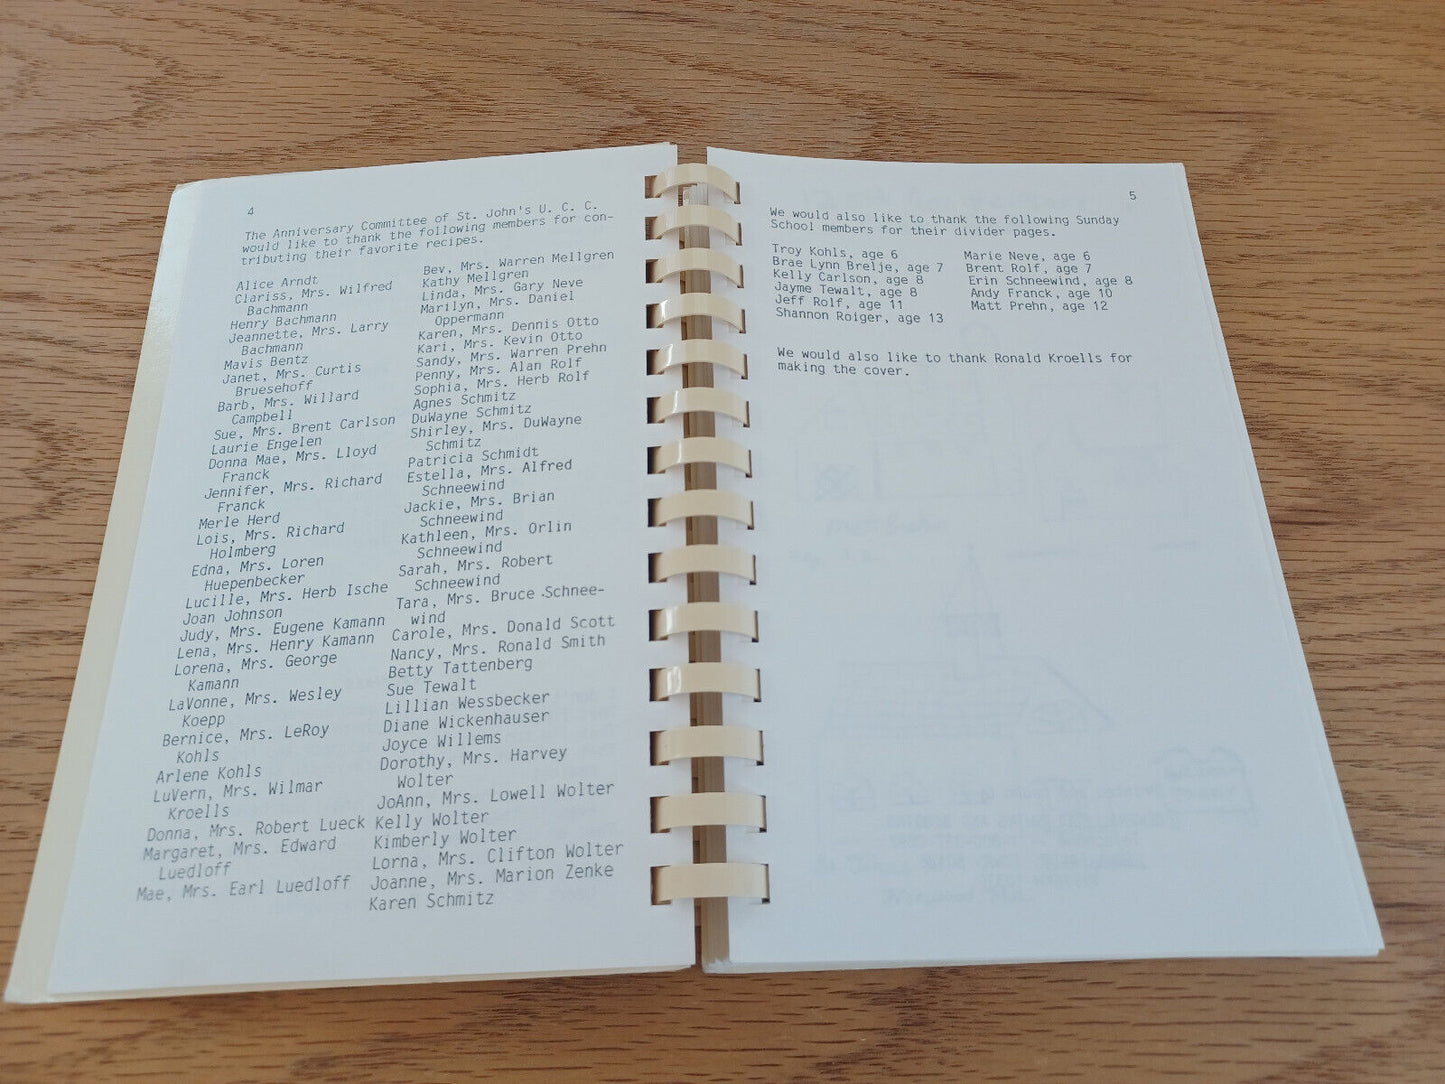 4
The Anniversary Committee of St. John's U. C. C.
would like to thank the following members for con-
tributing their favorite recipes.
Alice Arndt
Clariss, Mrs. Wilfred
Bachmann
Henry Bachmann
Jeannette, Mrs. Larry
Bachmann
Mavis Bentz
Janet, Mrs. Curtis
Bruesehoff
Barb, Mrs. Willard
Campbell
Sue, Mrs. Brent Carlson
Laurie Engelen
Donna Mae, Mrs. Lloyd
Franck
Jennifer, Mrs. Richard
Franck
Merle Herd
Lois, Mrs. Richard
Holmberg
Edna, Mrs. Loren
Huepenbecker
Lucille, Mrs. Herb Ische
Joan Johnson
Judy, Mrs. Eugene Kamann
Lena, Mrs. Henry Kamann
Lorena, Mrs. George
Kamann
LaVonne, Mrs. Wesley
Koepp
Bernice, Mrs. LeRoy
Kohls
Arlene Kohls
LuVern, Mrs. Wilmar
Kroells
Donna, Mrs. Robert Lueck
Margaret, Mrs. Edward
Luedloff
Mae, Mrs. Earl Luedloff
Bev, Mrs. Warren Mellgren
Kathy Mellgren
Linda, Mrs. Gary Neve
Marilyn, Mrs. Daniel
Oppermann
Karen, Mrs. Dennis Otto
Kari, Mrs. Kevin Otto
Sandy, Mrs. Warren Prehn
Penny, Mrs. Alan Rolf
Sophia, Mrs. Herb Rolf
Agnes Schmitz
DuWayne Schmitz
Shirley, Mrs. DuWayne
Schmitz
Patricia Schmidt
Estella, Mrs. Alfred
Schneewind
Jackie, Mrs. Brian
Schneewind
Kathleen, Mrs. Orlin
Schneewind
Sarah, Mrs. Robert
Schneewind
Tara, Mrs. Bruce Schnee-
wind
Carole, Mrs. Donald Scott
Nancy, Mrs. Ronald Smith
Betty Tattenberg
Sue Tewalt
Lillian Wessbecker
Diane Wickenhauser
Joyce Willems
Dorothy, Mrs. Harvey
Wolter
JoAnn, Mrs. Lowell Wolter
Kelly Wolter
Kimberly Wolter
Lorna, Mrs. Clifton Wolter
Joanne, Mrs. Marion Zenke
Karen Schmitz
5
We would also like to thank the following Sunday
School members for their divider pages.
Troy Kohls, age 6
Brae Lynn Brelje, age 7
Kelly Carlson, age 8
Jayme Tewalt, age 8
Jeff Rolf, age 11
Shannon Roiger, age 13
Marie Neve, age 6
Brent Rolf, age 7
Erin Schneewind, age 8
Andy Franck, age 10
Matt Prehn, age 12
We would also like to thank Ronald Kroells for
making the cover.